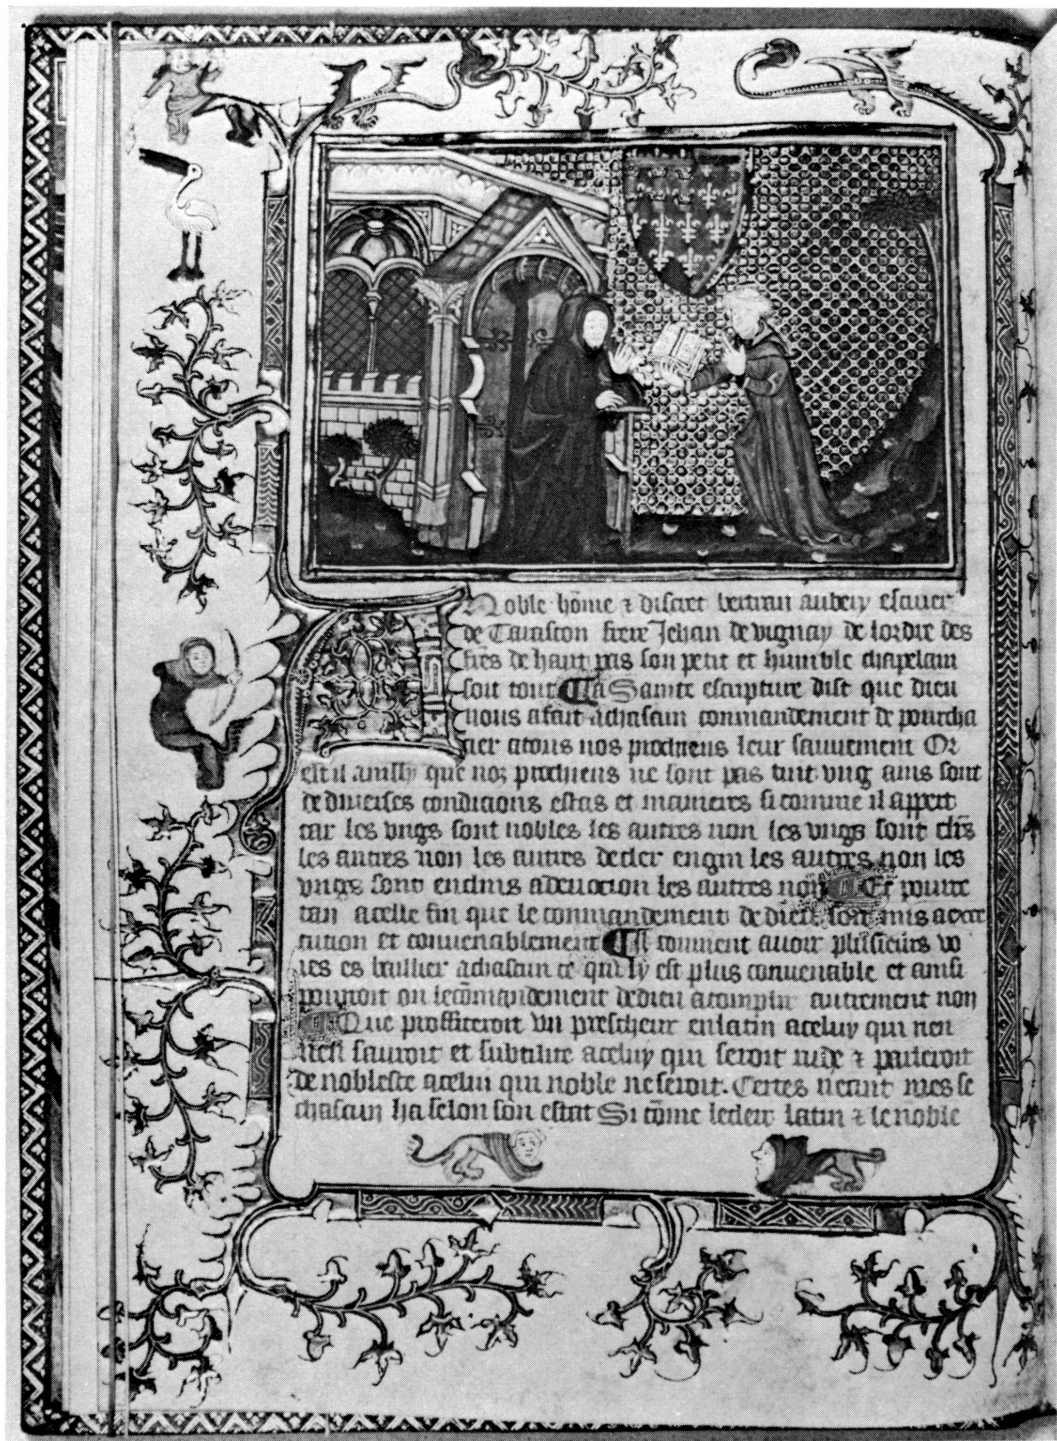 Noble hõme ⁊ discret bertran aubery escuier
de Tarascon frere Jehan de vignay de lordre des
fres de haut pas son petit et humble chapelain
soit tout La Sainte escripture dist que dieu
nous a fait achascun commandement de pourcha
cier atous nos prochiens leur sauvement Or
est il ainssy que noz prochiens ne sont pas tuit vng ains sont
de diuerses condicions estas et manieres si comme il appert
car les vngs sont nobles les autres non les vngs sont clrs
les autres non les autres decler engin les autres non les
vngs sont enclins adeuocion les autres non Et pource
tan acelle fin que le commandement de dieu soit mis aexe
cution et conuenablement Il conuient auoir plusieurs vo
ies es baillier achascun ce qui ly est plus conuenable et ainsi
pourroit on lecõmandement dedieu acomplir autrement non
Que proffiteroit vn prescheur enlatin aceluy qui rien
nen sauroit et subtilite aceluy qui seroit rude ⁊ parleroit
de noblesce acelui qui noble ne seroit. Certes neant mes se
chascun ha selon son estat Si cõme leclerc latin ⁊ le noble